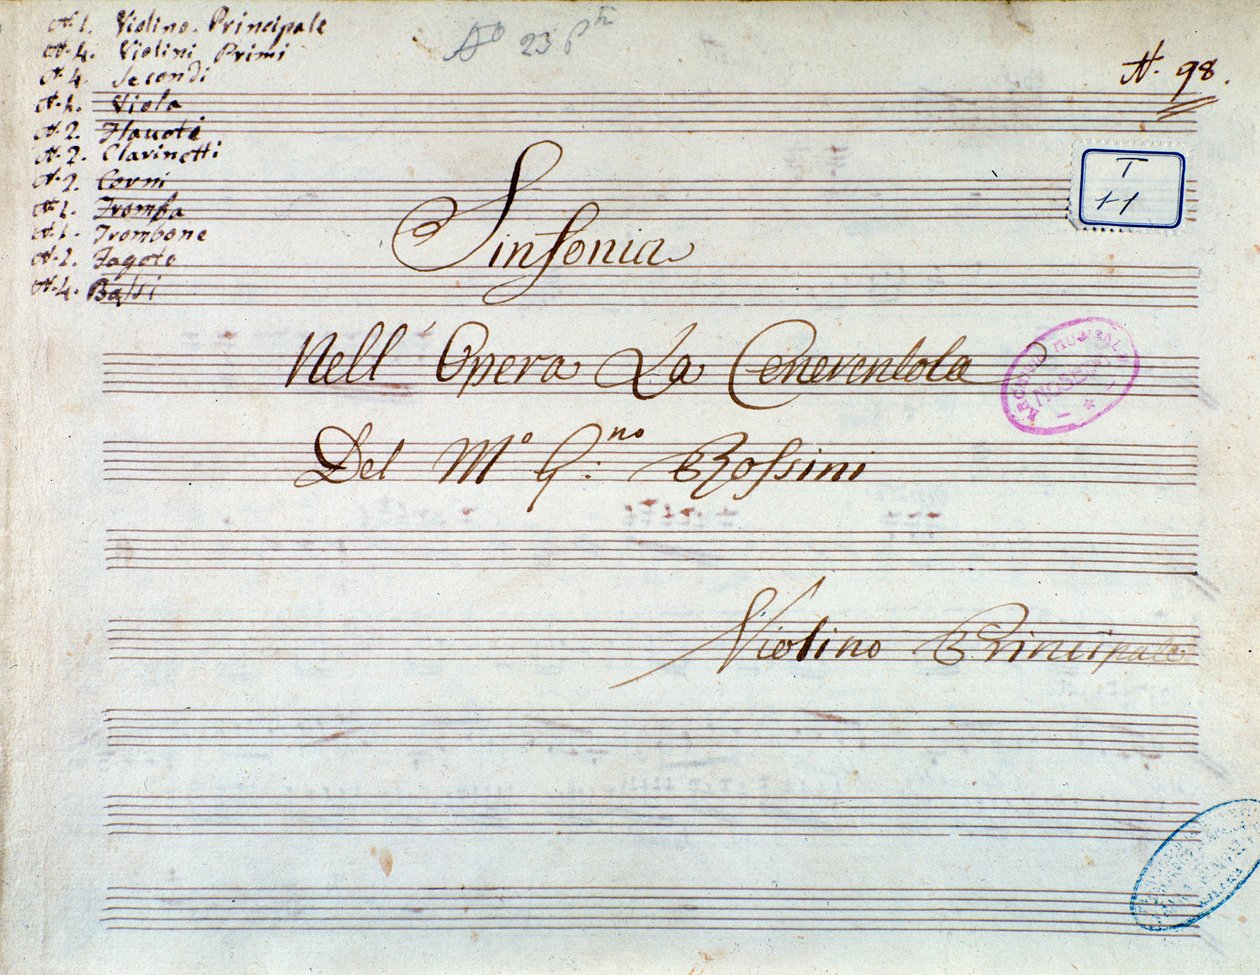 N. 1. Violino Principale
N. 4. Violini Primi
N. 4. Secondi
N. 1. Viola
N. 2. Flauoti
N. 2. Clarinetti
N. 2. Corni
N. 1. Tromba
N. 1. Trombone
N. 2. Fagoto
N. 4. Bassi
23
N. 98.
T
11
Sinfonia
Nell' Opera La Cenerentola
ARCHIVIO MUSICALE
NOSEDA
Del M.º G.no Rossini
Violino Principale